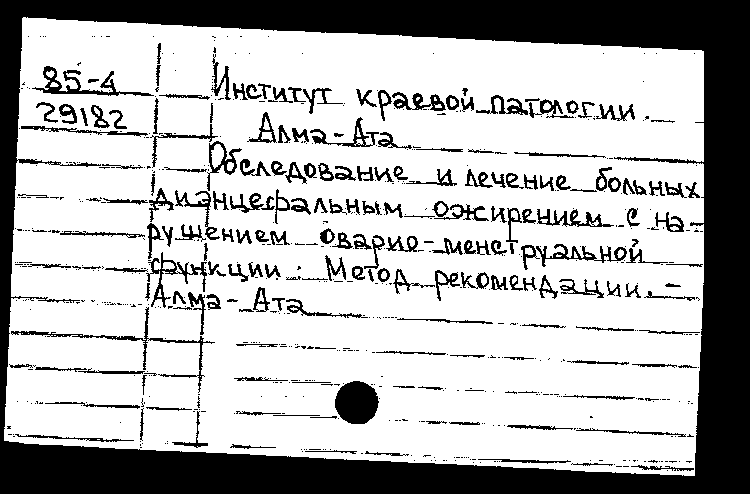 85-4
29182
Институт краевой патологии.
Алма-Ата
Обследование и лечение больных
диэнцефальным ожирением с на-
рушением оварио-менструальной
функции: Метод рекомендации. -
Алма-Ата